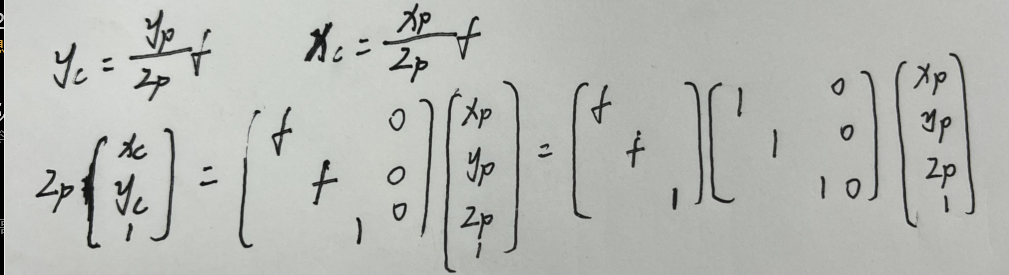 y_c = \frac{y_p}{z_p} f    x_c = \frac{x_p}{z_p} f
z_p \begin{bmatrix} x_c \\ y_c \\ 1 \end{bmatrix} = \begin{bmatrix} f & & & 0 \\ & f & & 0 \\ & & 1 & 0 \end{bmatrix} \begin{bmatrix} x_p \\ y_p \\ z_p \\ 1 \end{bmatrix} = \begin{bmatrix} f & & \\ & f & \\ & & 1 \end{bmatrix} \begin{bmatrix} 1 & & & 0 \\ & 1 & & 0 \\ & & 1 & 0 \end{bmatrix} \begin{bmatrix} x_p \\ y_p \\ z_p \\ 1 \end{bmatrix}